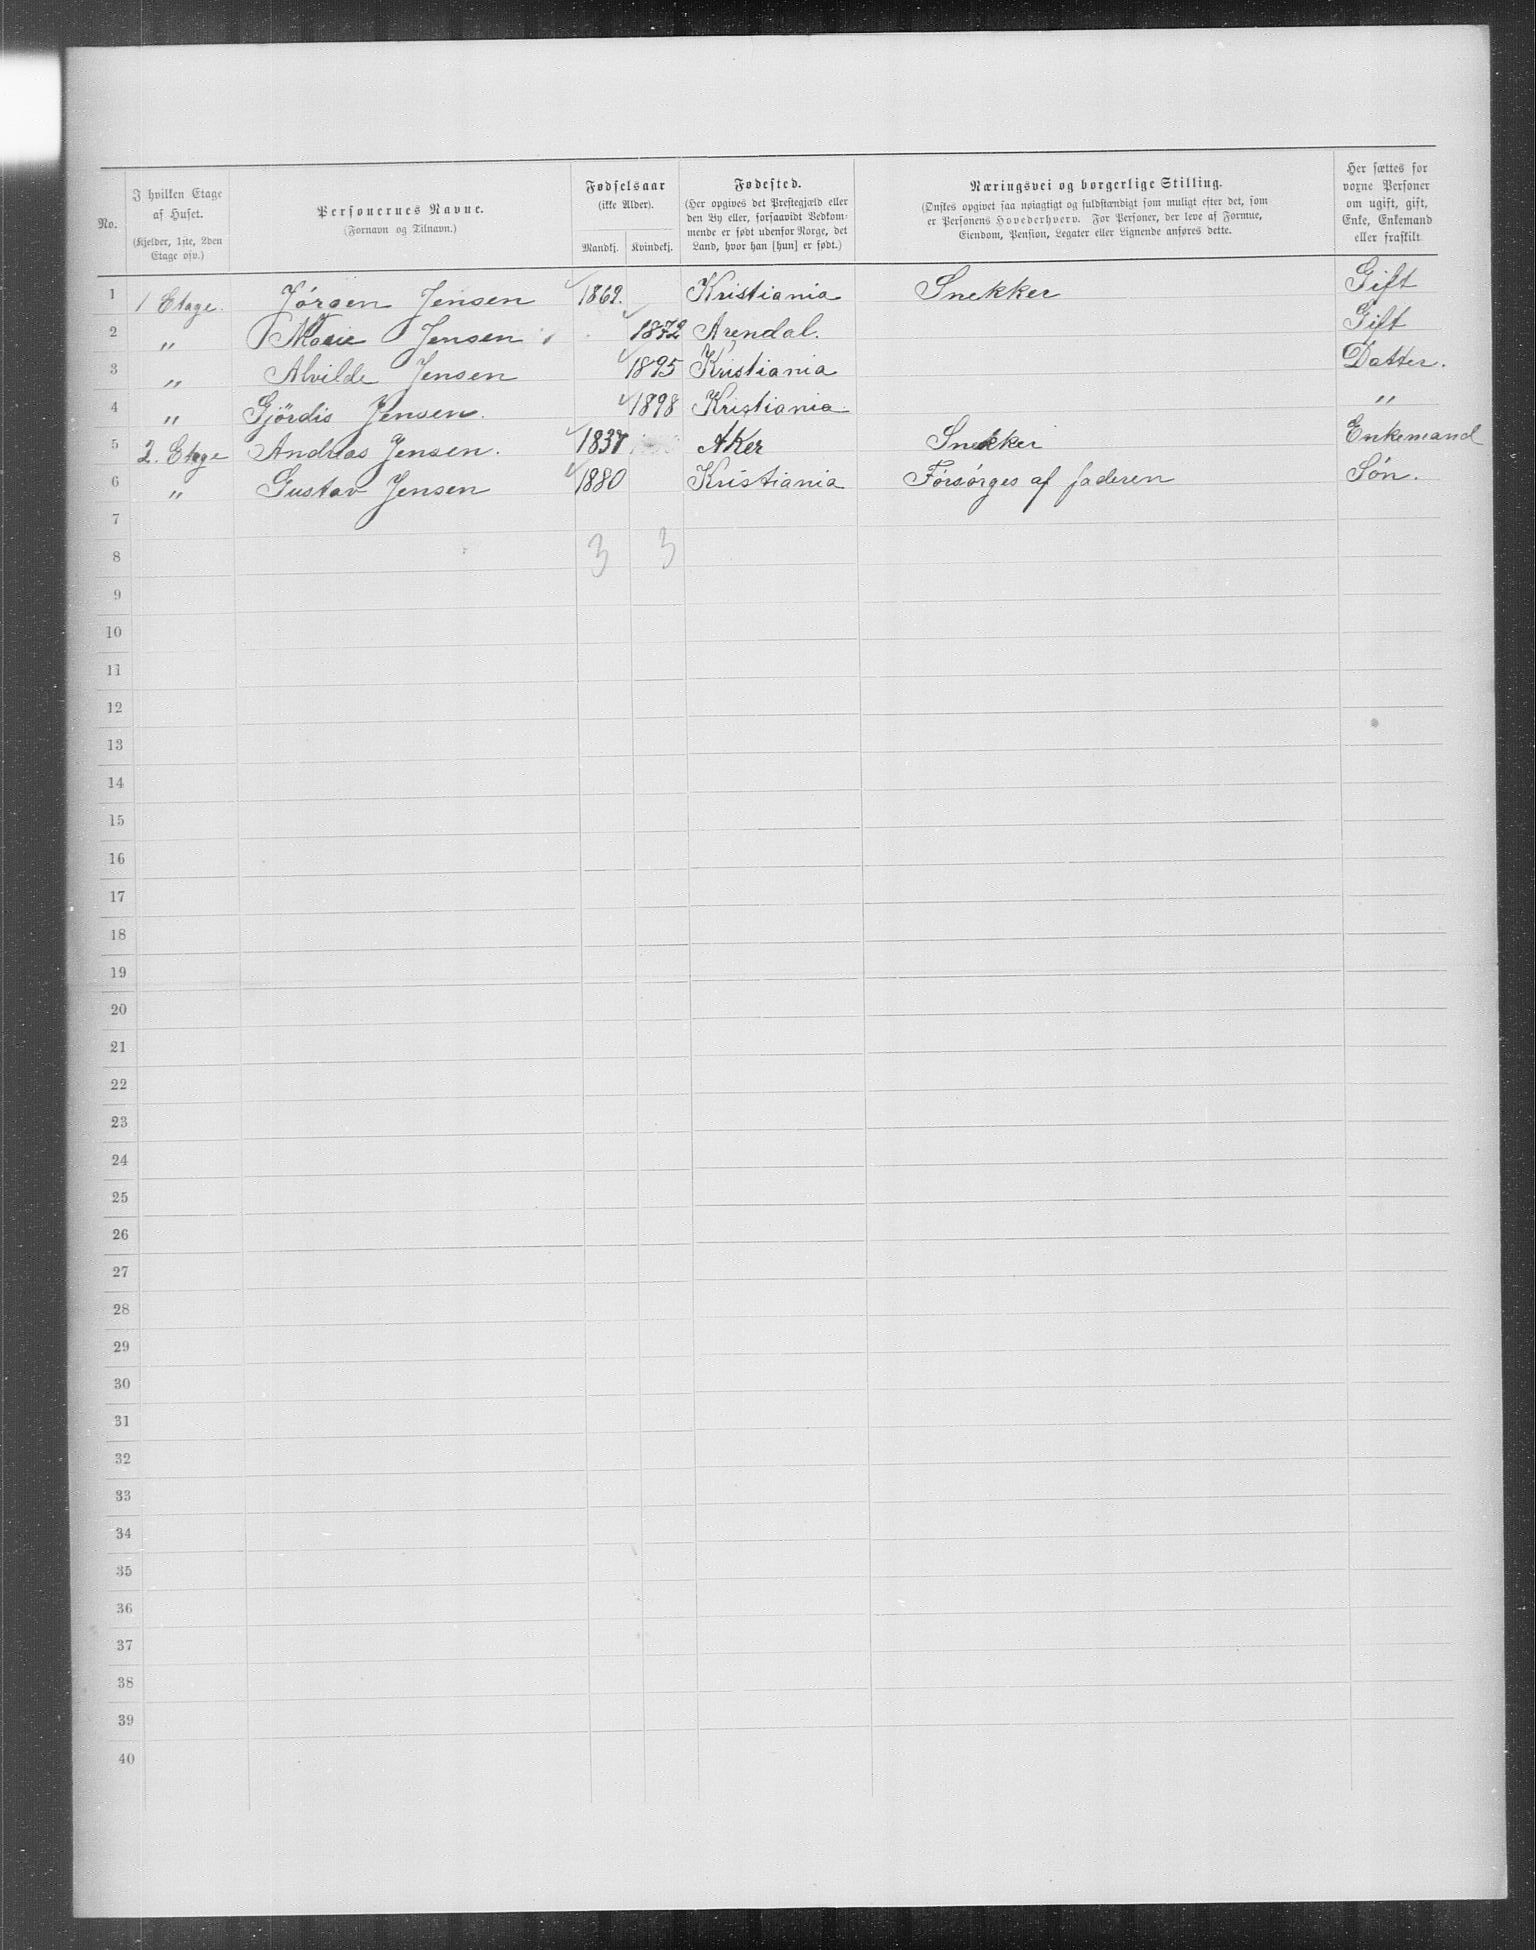 No. | I hvilken Etage af Huset. (Kjelder, 1ste, 2den Etage osv.) | Personernes Navne. (Fornavn og Tilnavn.) | Fødselsaar (ikke Alder). Mandkj. | Kvindekj. | Fødested. (Her opgives det Prestegjæld eller den By eller, forsaavidt Vedkommende er født udenfor Norge, det Land, hvor han [hun] er født.) | Næringsvei og borgerlige Stilling. (Ønskes opgivet saa nøiagtigt og fuldstændigt som muligt efter det, som er Personens Hovederhverv. For Personer, der leve af Formue, Eiendom, Pension, Legater eller Lignende anføres dette. | Her sættes for voxne Personer om ugift, gift, Enke, Enkemand eller fraskilt
1 1 Etage. Jörgen Jensen 1869. Kristiania Snekker Gift
2 " Marie Jensen 1872 Arendal. Gift
3 " Alvilde Jensen 1895 Kristiania Datter.
4 " Gjördis Jensen. 1898 Kristiania. "
5 2. Etage Andreas Jensen. 1837 AKer Snekker Enkemand
6 " Gustav Jensen 1880 Kristiania Forsörges af faderen Sön.
7
8 3 3
9
10
11
12
13
14
15
16
17
18
19
20
21
22
23
24
25
26
27
28
29
30
31
32
33
34
35
36
37
38
39
40